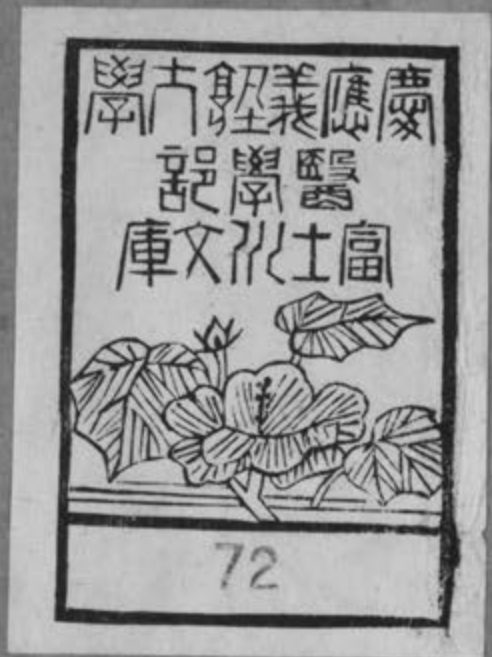 慶應義塾大學
醫學部
富士川文庫
72